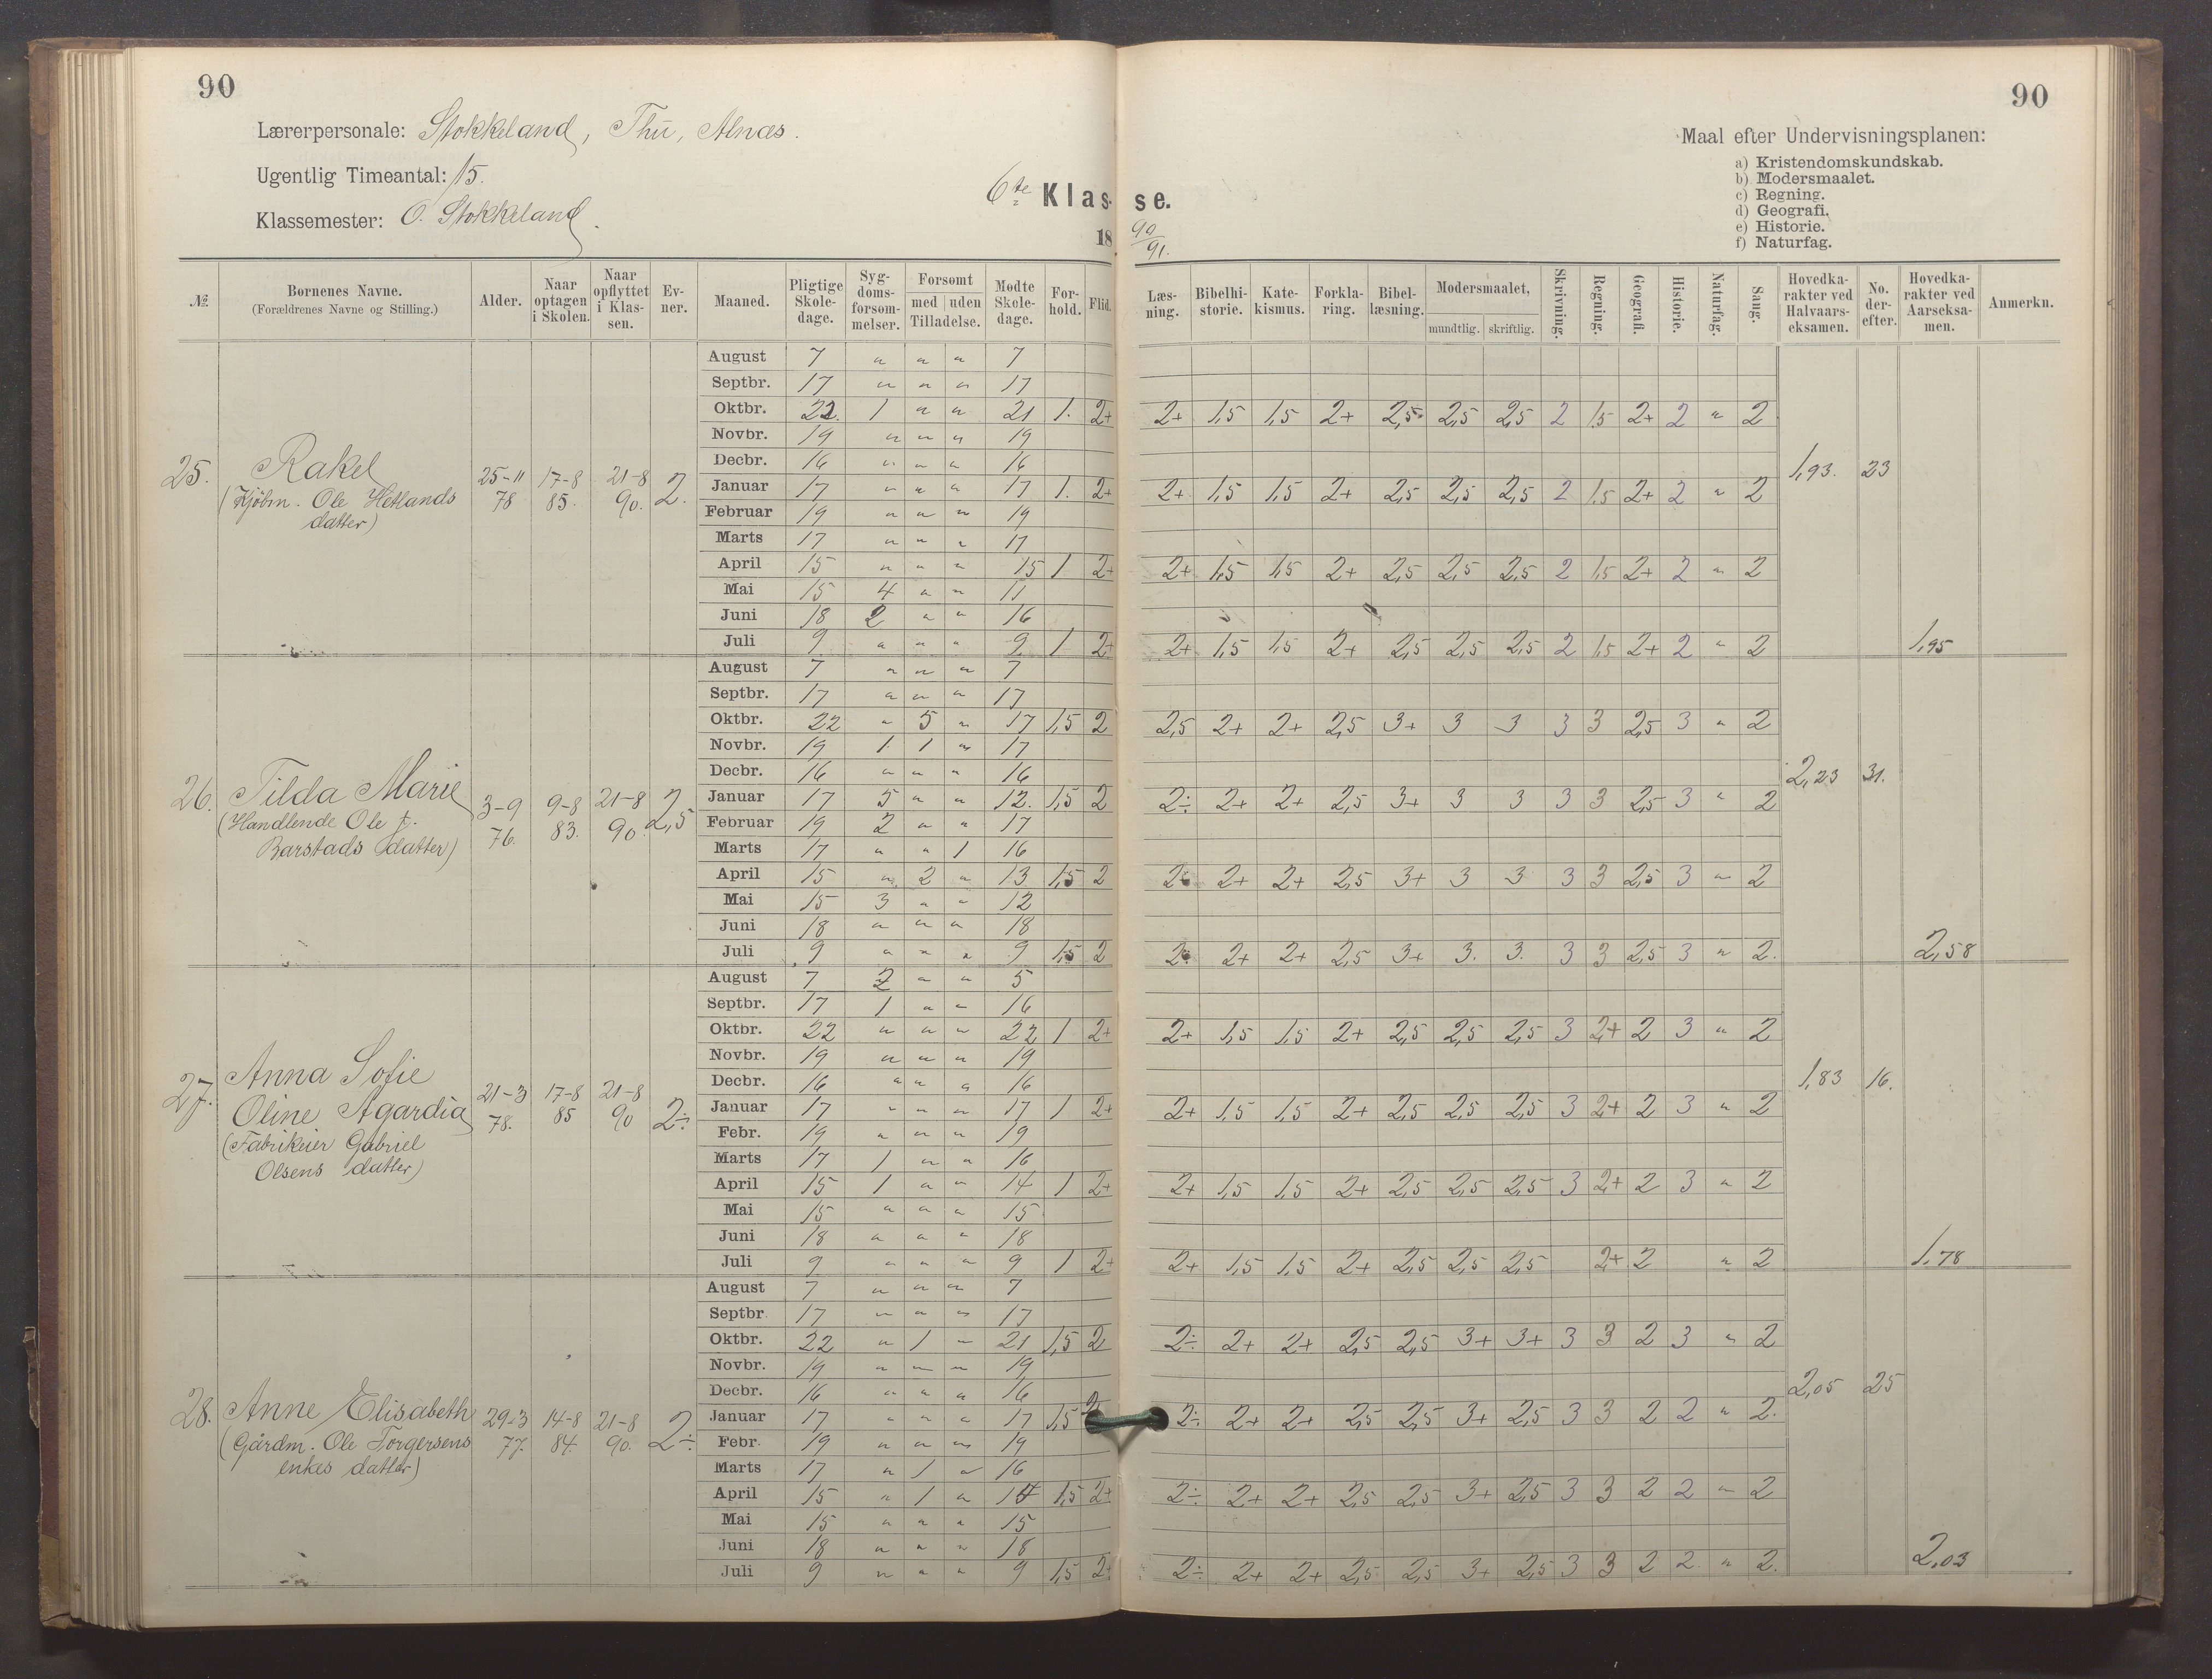 90
90
Lærerpersonale: Stokkeland, Thu, Alnæs.
Ugentlig Timeantal: 15.
Klassemester: O. Stokkeland.
6te Klasse.
18 90/91.
Maal efter Undervisningsplanen:
a) Kristendomskundskab.
b) Modersmaalet.
c) Regning.
d) Geografi.
e) Historie.
f) Naturfag.
№ | Børnenes Navne. (Forældrenes Navne og Stilling.) | Alder. | Naar optagen i Skolen. | Naar opflyttet i Klassen. | Evner. | Maaned. | Pligtige Skoledage. | Sygdomsforsømmelser. | Forsømt med | uden Tilladelse. | Mødte Skoledage. | Forhold. | Flid. | Læsning. | Bibelhistorie. | Katekismus. | Forklaring. | Bibellæsning. | Modersmaalet, mundtlig. | skriftlig. | Skrivning. | Regning. | Geografi. | Historie. | Naturfag. | Sang. | Hovedkarakter ved Halvaarseksamen. | No. derefter. | Hovedkarakter ved Aarseksamen. | Anmerkn.
25. Rakel (Kjöbm. Ole Hetlands datter) 25-11 78 | 17-8 85. | 21-8 90. | 2. | 1,93. | 23 | 1,95
August 7 " " " 7
Septbr. 17 " " " 17
Oktbr. 22. 1 " " 21 1. 2+ 2+ 1,5 1,5 2+ 2,5 2,5 2,5 2 1,5 2+ 2 " 2
Novbr. 19 " " " 19
Decbr. 16 " " " 16
Januar 17 " " " 17 1. 2+ 2+ 1,5 1,5 2+ 2,5 2,5 2,5 2 1,5 2+ 2 " 2
Februar 19 " " " 19
Marts 17 " " " 17
April 15 " " " 15 1 2+ 2+ 1,5 1,5 2+ 2,5 2,5 2,5 2 1,5 2+ 2 " 2
Mai 15 4 " " 11
Juni 18 2 " " 16
Juli 9 " " " 9 1 2+ 2+ 1,5 1,5 2+ 2,5 2,5 2,5 2 1,5 2+ 2 " 2
26. Tilda Marie (Handlende Ole †. Barstads datter) 3-9 76. | 9-8 83. | 21-8 90. | 2,5 | 2,23 | 31. | 2,58
August 7 " " " 7
Septbr. 17 " " " 17
Oktbr. 22 " 5 " 17 1,5 2 2,5 2+ 2+ 2,5 3+ 3 3 3 3 2,5 3 " 2
Novbr. 19 1 1 " 17
Decbr. 16 " " " 16
Januar 17 5 " " 12. 1,5 2 2÷ 2+ 2+ 2,5 3+ 3 3 3 3 2,5 3 " 2
Februar 19 2 " " 17
Marts 17 " " 1 16
April 15 " 2 " 13 1,5 2 2÷ 2+ 2+ 2,5 3+ 3 3 3 3 2,5 3 " 2
Mai 15 3 " " 12
Juni 18 " " " 18
Juli 9 " " " 9 1,5 2 2÷ 2+ 2+ 2,5 3+ 3. 3. 3 3 2,5 3 " 2.
27. Anna Sofie Oline Agardia (Fabrikeier Gabriel Olsens datter) 21-3 78. | 17-8 85 | 21-8 90 | 2÷ | 1,83 | 16. | 1,78
August 7 2 " " 5
Septbr. 17 1 " " 16
Oktbr. 22 " " " 22 1 2+ 2+ 1,5 1,5 2+ 2,5 2,5 2,5 3 2+ 2 3 " 2
Novbr. 19 " " " 19
Decbr. 16 " " " 16
Januar 17 " " " 17 1 2+ 2+ 1,5 1,5 2+ 2,5 2,5 2,5 3 2+ 2 3 " 2
Febr. 19 " " " 19
Marts 17 1 " " 16
April 15 1 " " 14 1 2+ 2+ 1,5 1,5 2+ 2,5 2,5 2,5 3 2+ 2 3 " 2
Mai 15 " " " 15
Juni 18 " " " 18
Juli 9 " " " 9 1 2+ 2+ 1,5 1,5 2+ 2,5 2,5 2,5 2+ 2 " 2
28. Anne Elisabeth (Gårdm. Ole Torgersens enkes datter) 29-3 77. | 14-8 84. | 21-8 90. | 2÷ | 2,05 | 25 | 2,03
August 7 " " " 7
Septbr 17 " " " 17
Oktbr. 22 " 1 " 21 1,5 2 2÷ 2+ 2+ 2,5 2,5 3+ 3+ 3 3 2 3 " 2
Novbr. 19 " " " 19
Decbr. 16 " " " 16
Januar 17 " " " 17 1,5 2÷ 2+ 2+ 2,5 2,5 3+ 2,5 3 3 2 2 " 2.
Febr. 19 " " " 19
Marts 17 " 1 " 16
April 15 " 1 " 14 1,5 2+ 2÷ 2+ 2+ 2,5 2,5 3+ 2,5 3 3 2 2 " 2
Mai 15 " " " 15
Juni 18 " " " 18
Juli 9 " " " 9 1,5 2+ 2÷ 2+ 2+ 2,5 2,5 3+ 2,5 3 3 2 2 " 2.